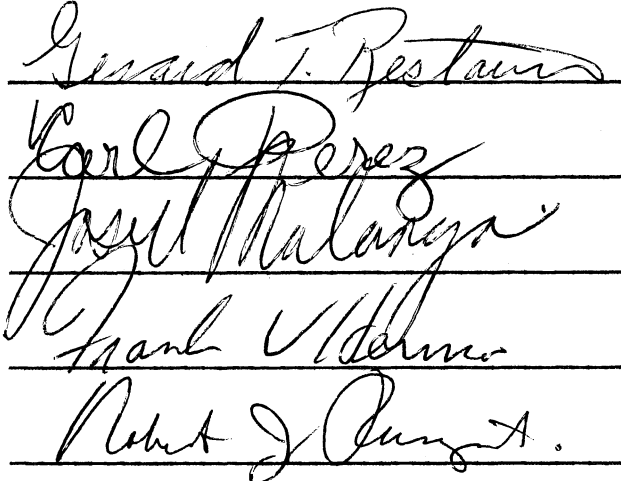 Gerard T. Restaino
Earl Perez
Joseph Malanga
Frank
Robert J